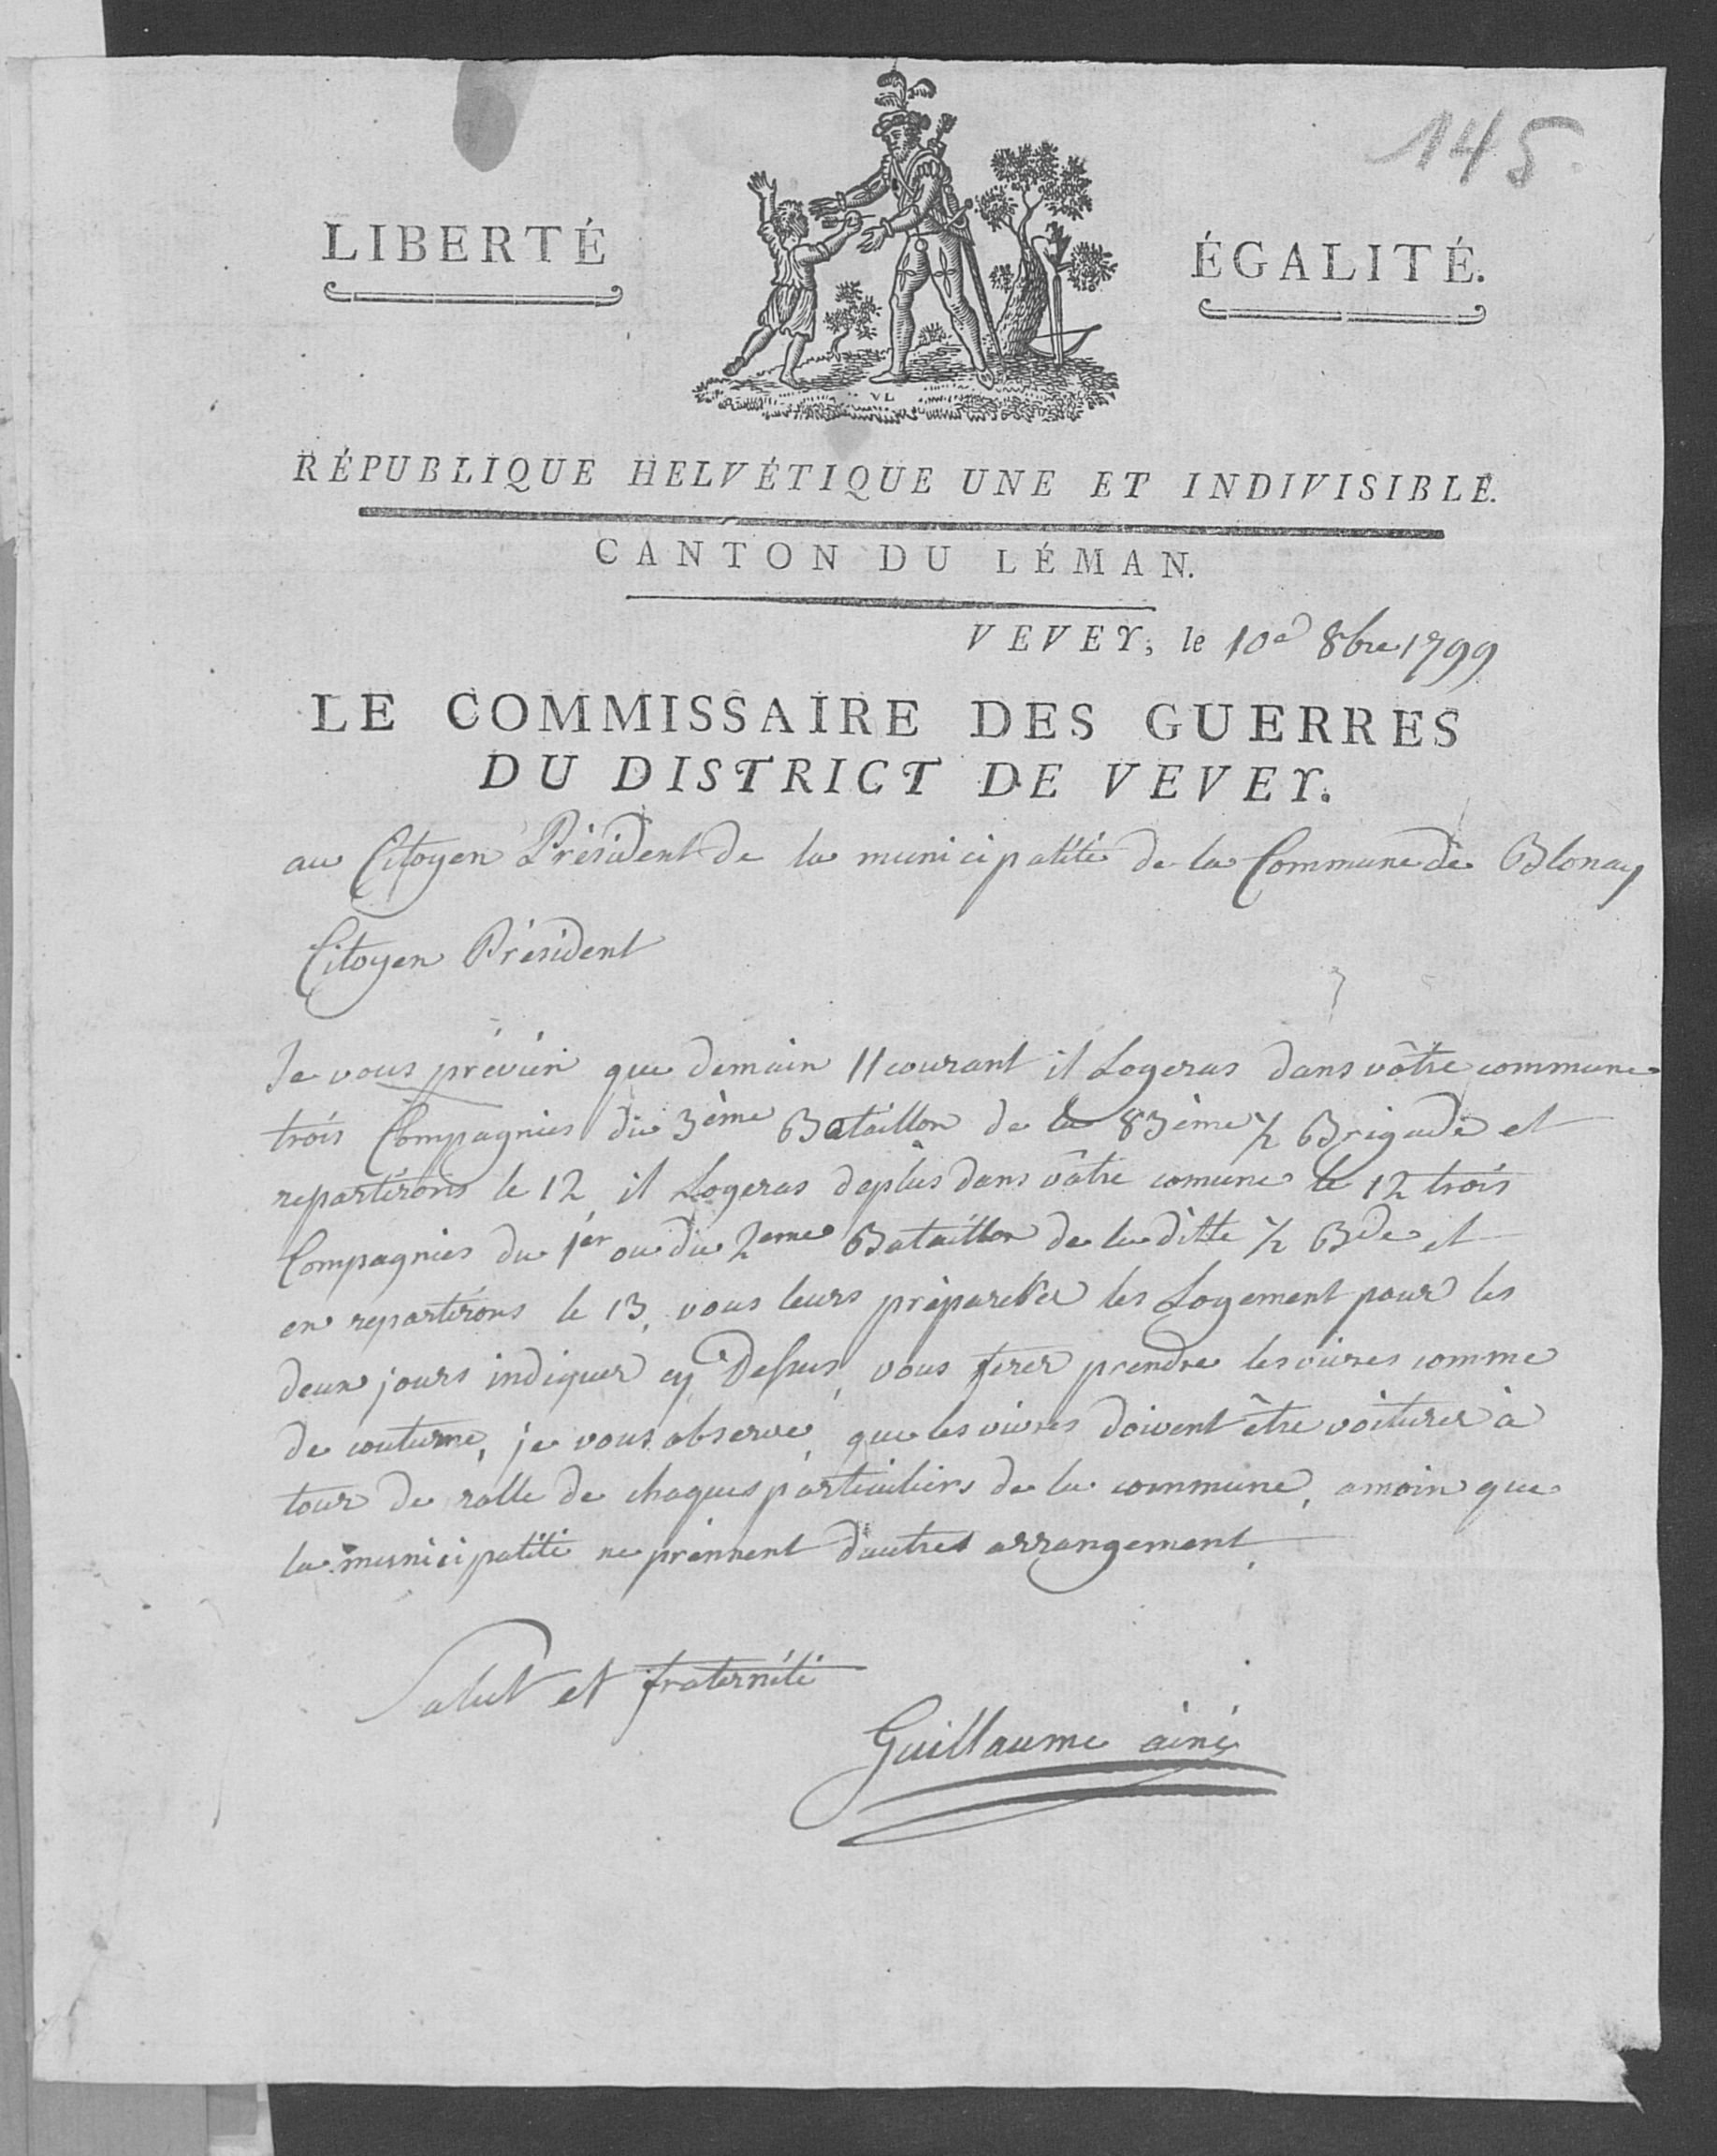 145
LIBERTÉ
ÉGALITÉ.
VL
RÉPUBLIQUE HELVÉTIQUE UNE ET INDIVISIBLE.
CANTON DU LÉMAN.
VEVEY, le 10e 8bre 1799
LE COMMISSAIRE DES GUERRES
DU DISTRICT DE VEVEY.
au Citoyen Président de la municipalité de la Commune de Blonay
Citoyen Président
Je vous prévien que demain 11 courant il Logeras dans vôtre commune
trois Compagnies du 3ème Bataillon de la 83ème ½ Brigade et
repartirons le 12, il Logeras deplus dans vôtre comune le 12 trois
Compagnies du 1er ou du 2eme Bataillon de la ditte ½ Bde et
en repartirons le 13, vous leurs préparerer les Logement pour les
deux jours indiquer cy Dessus, vous ferer prendre les vivres comme
de couturme, je vous observe, que les vivres doivent être voiturer à
tour de rolle de chaques particuliers de la commune, amoin que
la municipalité ne prènnent d'autres arrangement.
Salut et fraternité
Guillaume ainé